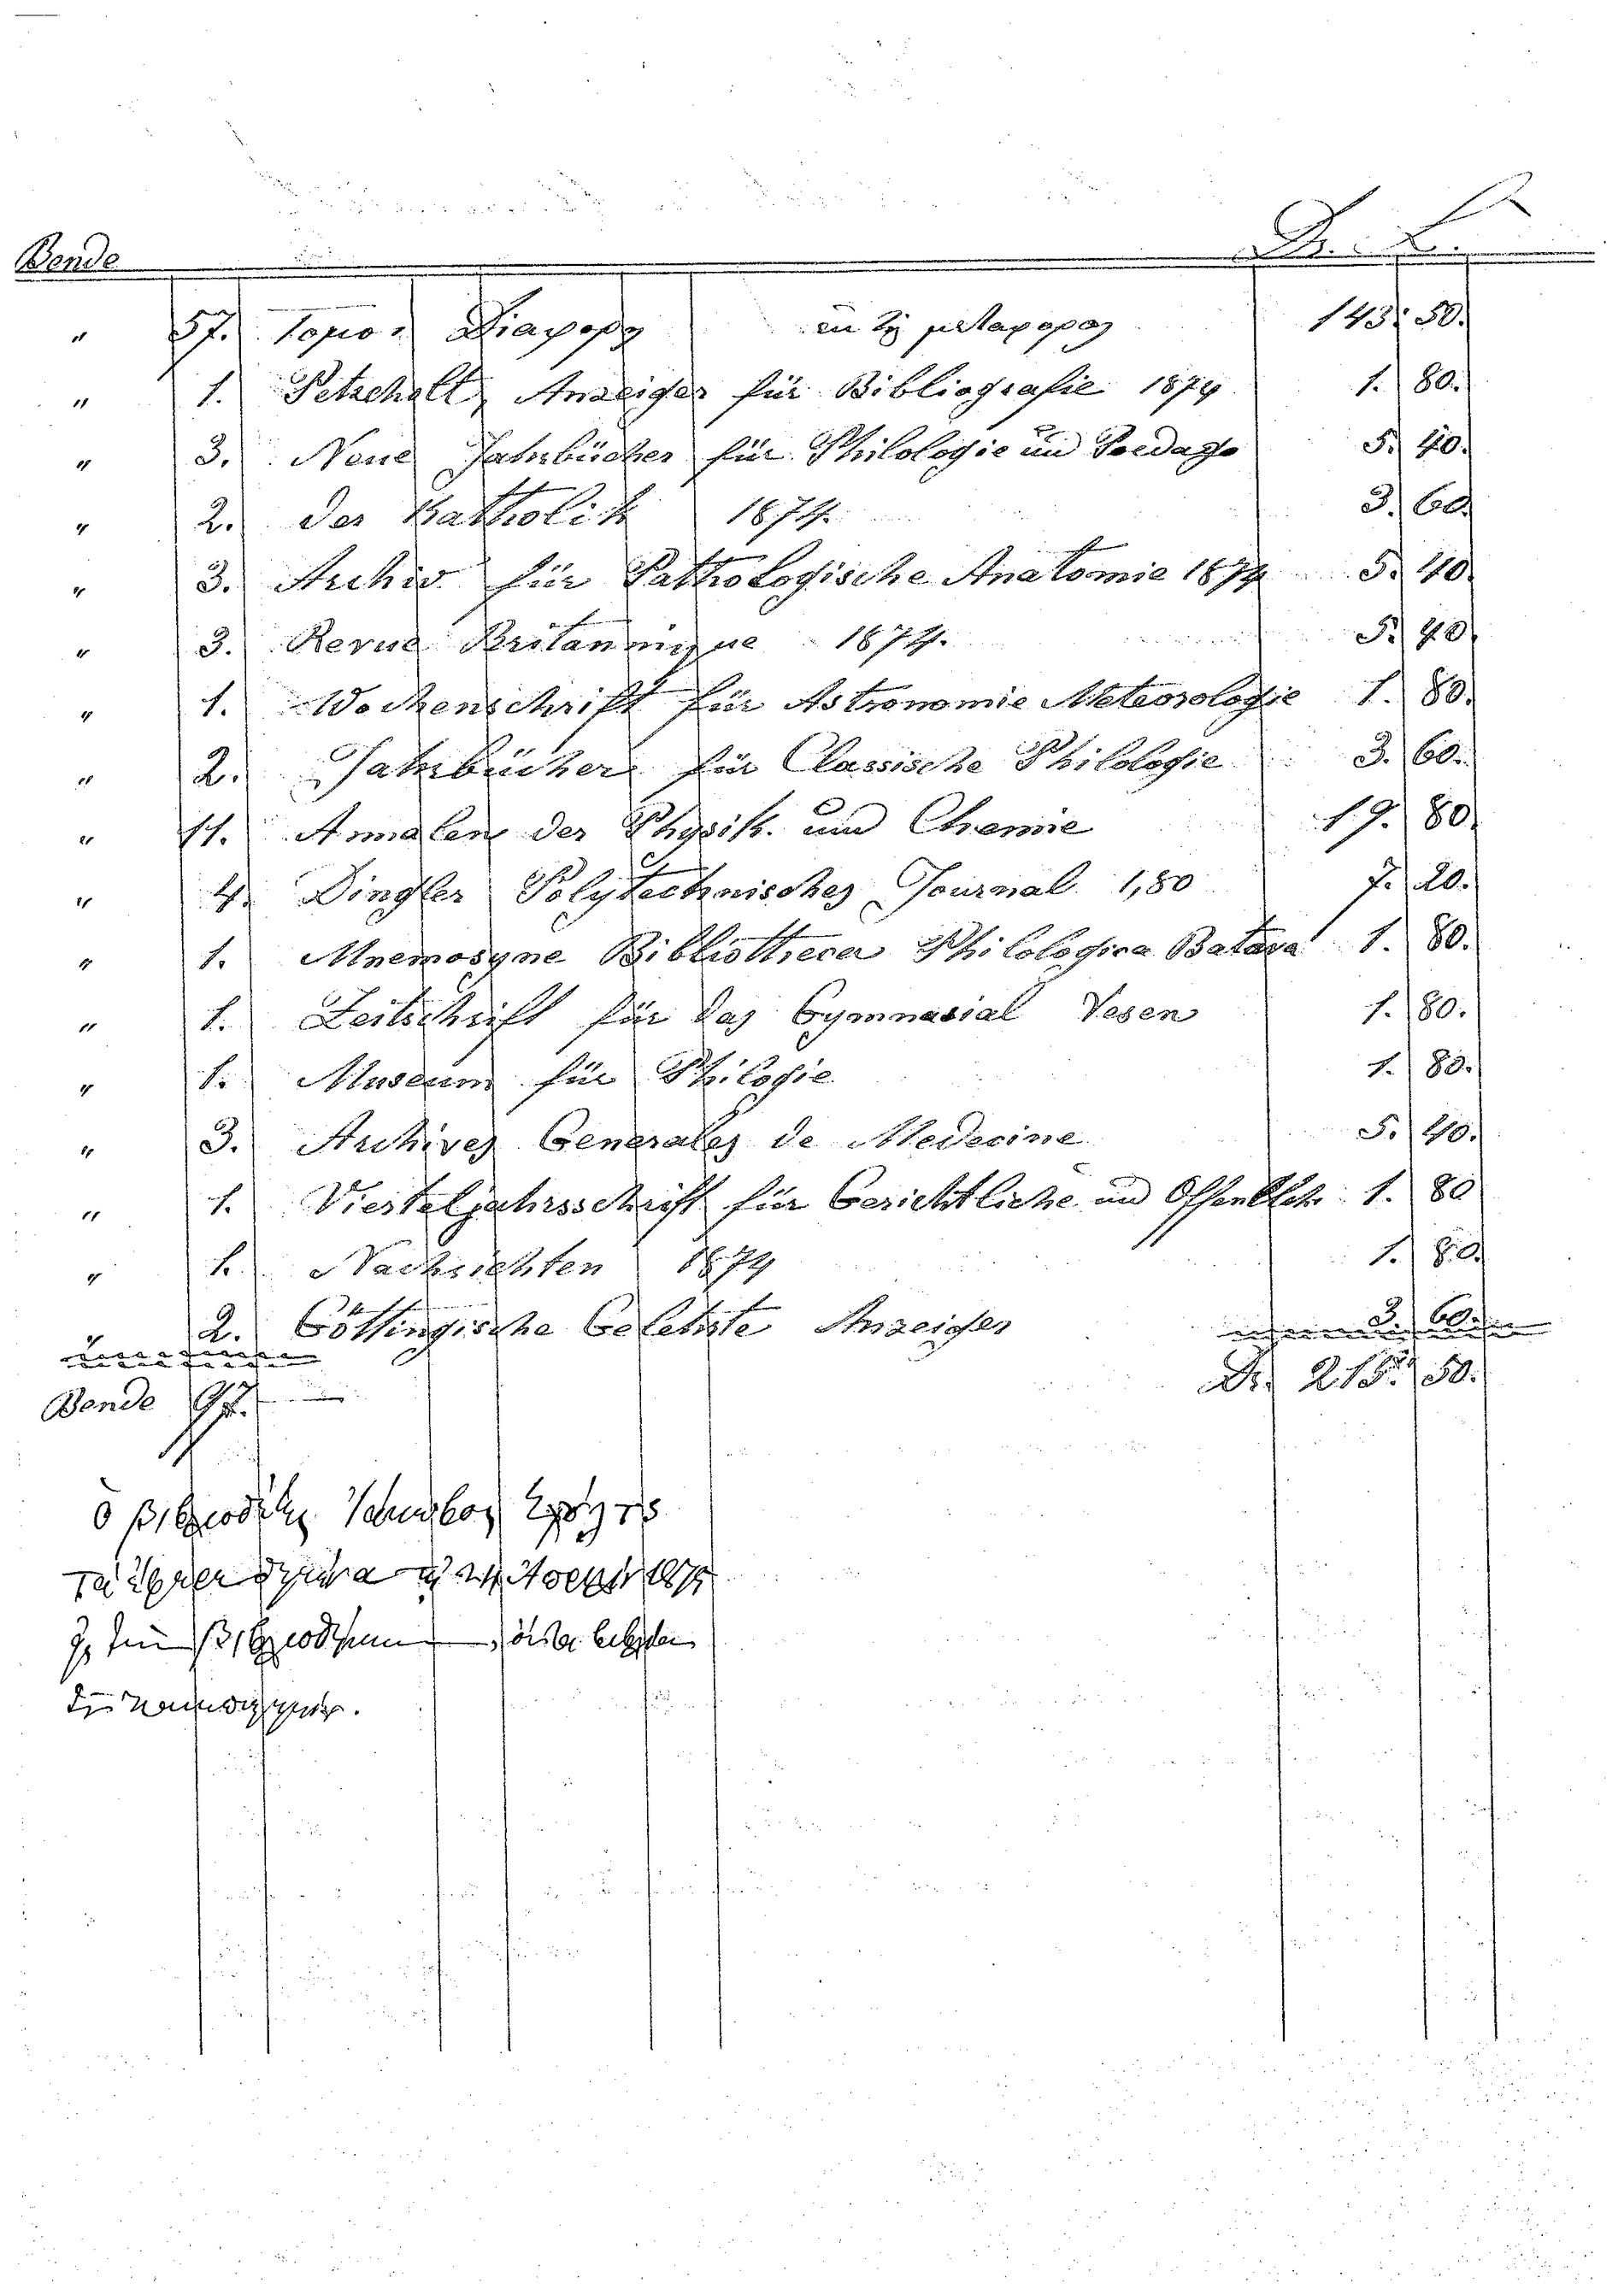 Bende Dr. L.
" 57. Τομοι Διαφορη εκ της μεταφορας 143. 50.
" 1. Petzholt Anzeiger für Bibliografie 1874 1. 80.
" 3. Neue Jahrbücher für Philologie un Paedago 5. 40.
" 2. der Katholik 1874. 3. 60.
" 3. Archiv für Pathologische Anatomie 1874 5. 40
" 3. Revue Britannique 1874. 5. 40.
" 1. Wochenschrift für Astronomie Meteorologie 1. 80.
" 2. Jahrbücher für Classische Philologie 3. 60.
" 11. Annalen der Physik und Chemie 19. 80.
" 4. Dingler Polytechnisches Journal 1,80 7. 20.
" 1. Mnemosyne Bibliotheca Philologica Batava 1. 80.
" 1. Zeitschrift für das Gymnasial Vesen 1. 80.
" 1. Museum für Philogie 1. 80.
" 3. Archives Generales de Medecine 5. 40.
" 1. Vierteljahrsschrift für Gerichtliche un Offentlich 1. 80
" 1. Nachrichten 1874 1. 80.
" 2. Göttingische Gelehrte Anzeigen 3. 60.
Bende 97. Dr. 215. 50.
ὁ βιβλιοδέτης
1875